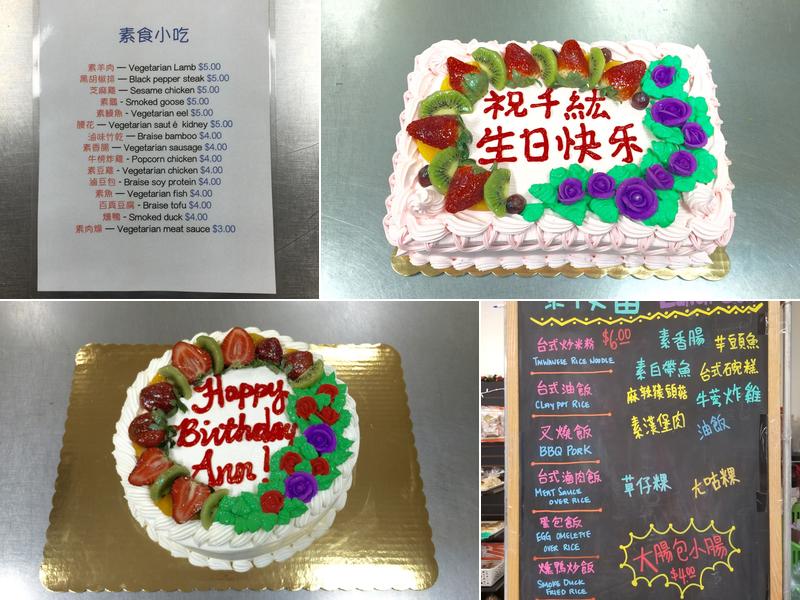 素食小吃
素羊肉 — Vegetarian Lamb $5.00
黑胡椒排 — Black pepper steak $5.00
芝麻雞 — Sesame chicken $5.00
素鵝 - Smoked goose $5.00
素鱔魚 - Vegetarian eel $5.00
腰花 — Vegetarian sauté kidney $5.00
滷味竹乾 — Braise bamboo $4.00
素香腸 — Vegetarian sausage $4.00
牛榜炸雞 - Popcorn chicken $4.00
素豆雞 - Vegetarian chicken $4.00
滷豆包 - Braise soy protein $4.00
素魚 — Vegetarian fish $4.00
百頁豆腐 - Braise tofu $4.00
燻鴨 - Smoked duck $4.00
素肉燥 — Vegetarian meat sauce $3.00
祝千紘
生日快乐
Happy
Birthday
Ann!
台式炒米粉 $6.00
TAIWANESE RICE NOODLE
台式油飯
CLAY POT RICE
叉燒飯
BBQ PORK
台式滷肉飯
MEAT SAUCE
OVER RICE
蛋包飯
EGG OMELETTE
OVER RICE
燻鴨炒飯
SMOKE DUCK
FRIED RICE
素香腸 芋頭魚
素白帶魚 台式碗糕
麻辣猴頭菇 牛蒡炸雞
素漢堡肉 油飯
草仔粿
大腸包小腸
$4.00